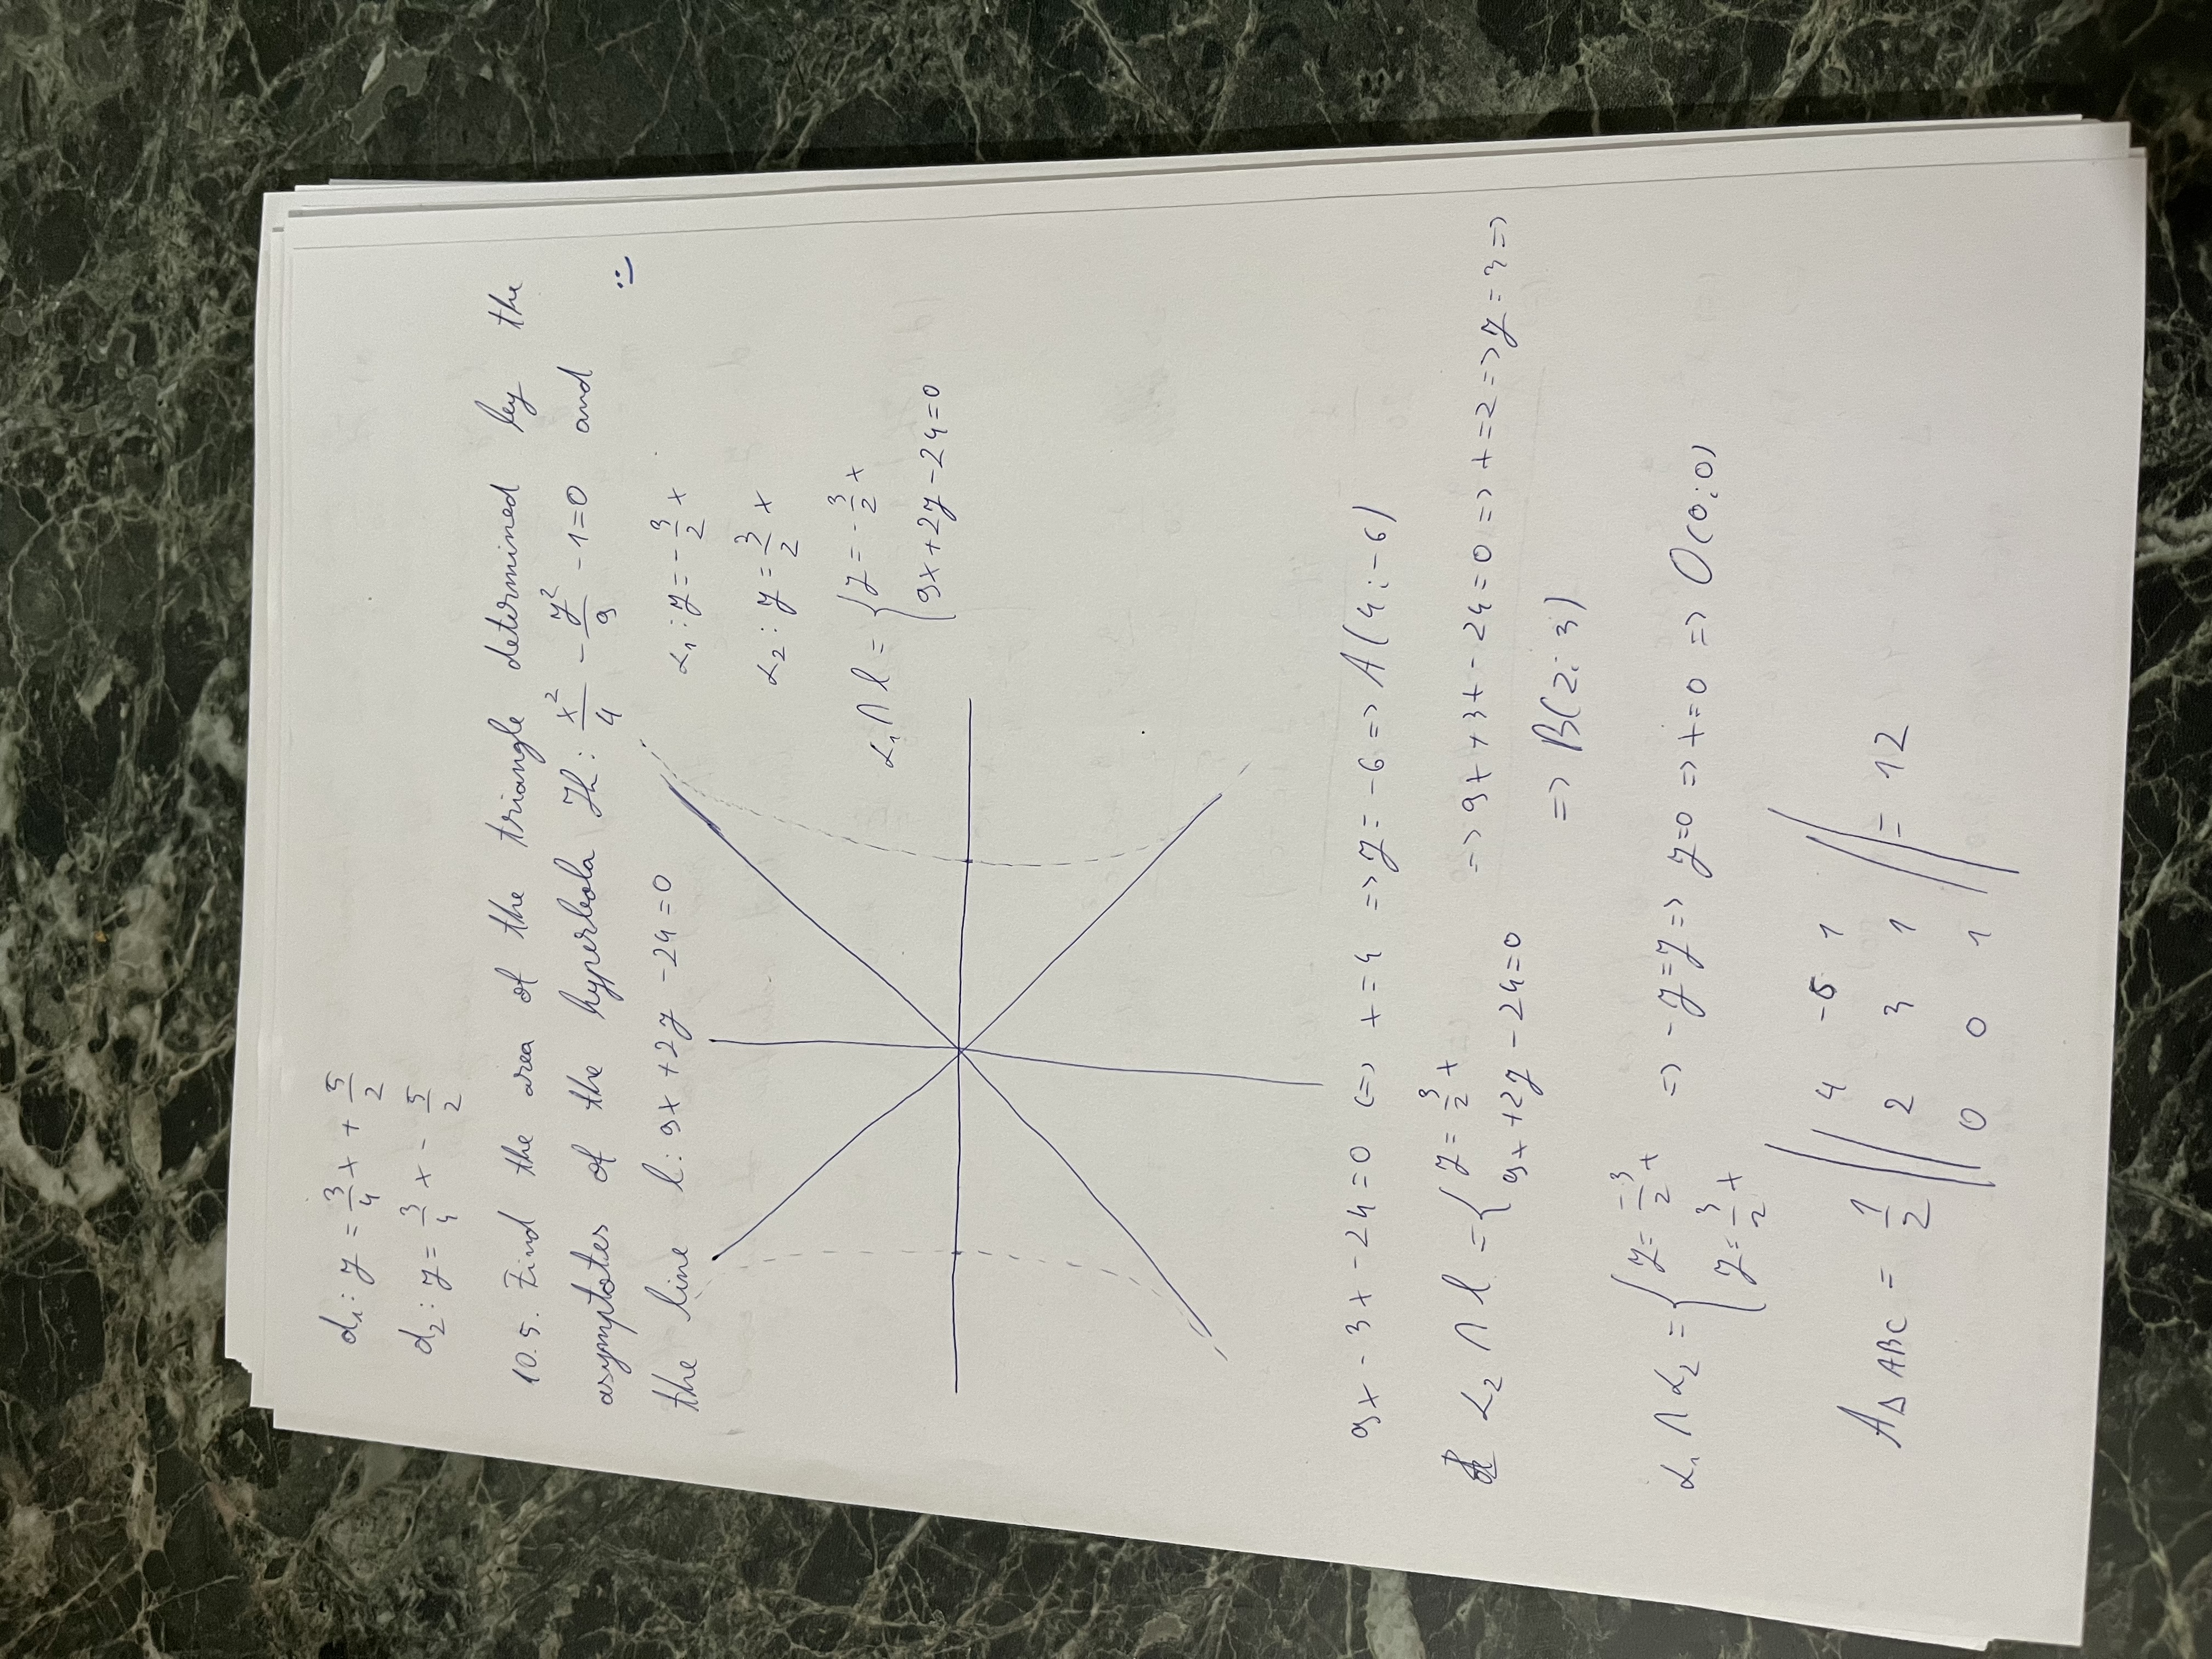 d₁: y = 3/4 x + 5/2
d₂: y = 3/4 x - 5/2
10.5. Find the area of the triangle determined by the
asymptotes of the hyperbola H: x²/4 - y²/9 - 1=0 and
the line l: 9x +2y -24=0
α₁: y= -3/2 x
α₂: y = 3/2 x
α₁ ∩ l = { y = -3/2 x
9x+2y-24=0
9x - 3x - 24 = 0 <=> x = 4 => y = -6 => A(4; -6)
α₂ ∩ l = { y = 3/2 x => 9x + 3x - 24 = 0 => x = 2 => y = 3 =>
9x +2y - 24=0
=> B(2; 3)
α₁ ∩ α₂ = { y = -3/2 x => -y = y => y=0 => x=0 => O(0;0)
y = 3/2 x
A△ABC = 1/2 || 4 -6 1
2 3 1
0 0 1 || = 12